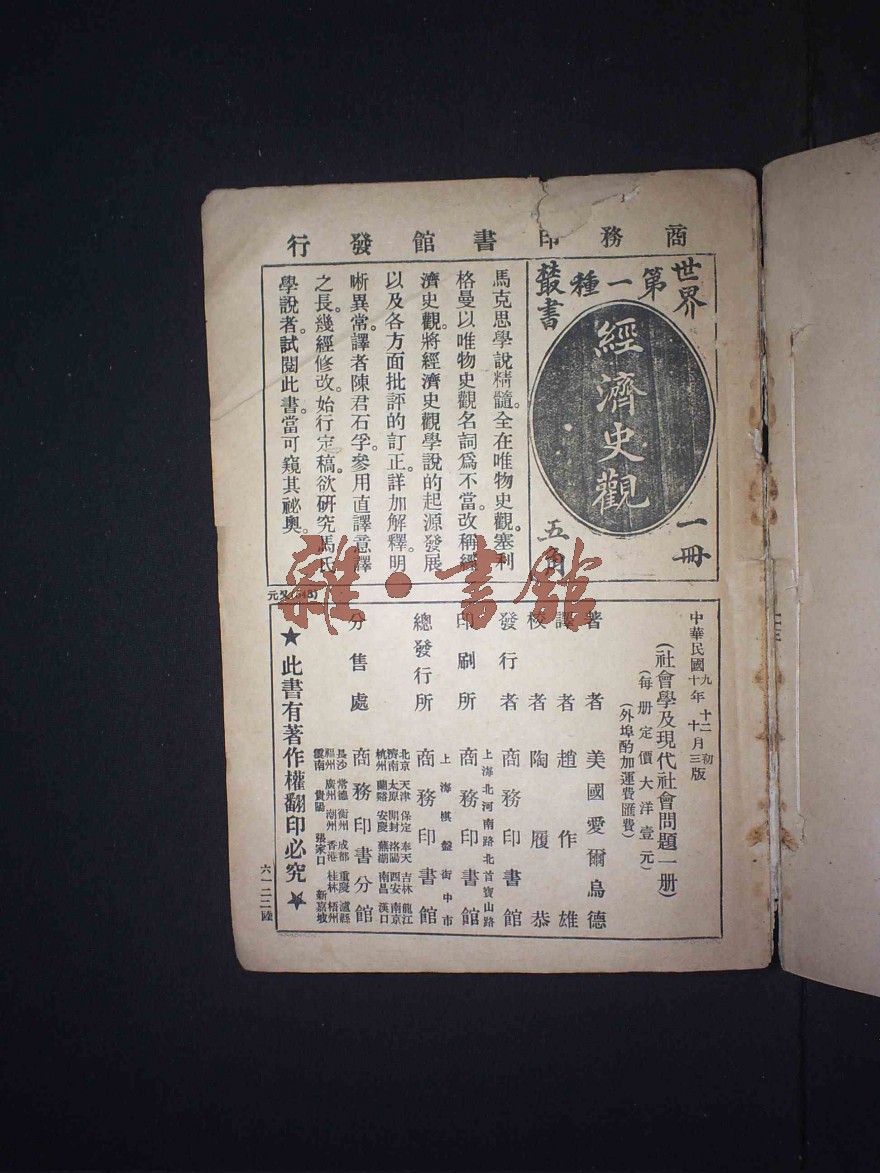 商務印書館發行
世界叢書
第一種
經濟史觀
一冊
五角
馬克思學說精髓。全在唯物史觀。塞利
格曼以唯物史觀名詞爲不當。改稱經
濟史觀。將經濟史觀學說的起源發展
以及各方面批評的訂正。詳加解釋。明
晰異常。譯者陳君石孚。參用直譯意譯
之長。幾經修改。始行定稿。欲研究馬氏
學說者。試閱此書。當可窺其祕奧。
中華民國九年十二月初版
十年十月三版
(社會學及現代社會問題一册)
(每册定價大洋壹元)
(外埠酌加運費匯費)
著者 美國愛爾烏德
譯者 趙作雄
校者 陶履恭
發行者 商務印書館
上海北河南路北首寶山路
印刷所 商務印書館
上海棋盤街中市
總發行所 商務印書館
北京 天津 保定 奉天 吉林 龍江
濟南 太原 開封 洛陽 西安 南京
杭州 蘭谿 安慶 蕪湖 南昌 漢口
分售處 商務印書分館
長沙 常德 衡州 成都 重慶 瀘縣
福州 廣州 潮州 香港 桂林 梧州
雲南 貴陽 張家口 新嘉坡
★此書有著作權翻印必究★
六一二二陸
雜·書館